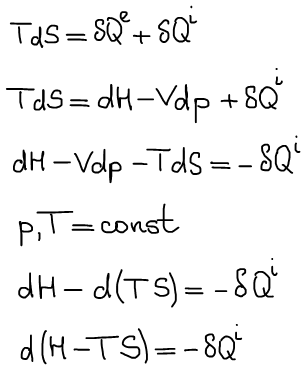 TdS = δQᵉ + δQⁱ
TdS = dH − Vdp + δQⁱ
dH − Vdp − TdS = − δQⁱ
p,T = const
dH − d(TS) = − δQⁱ
d(H − TS) = − δQⁱ